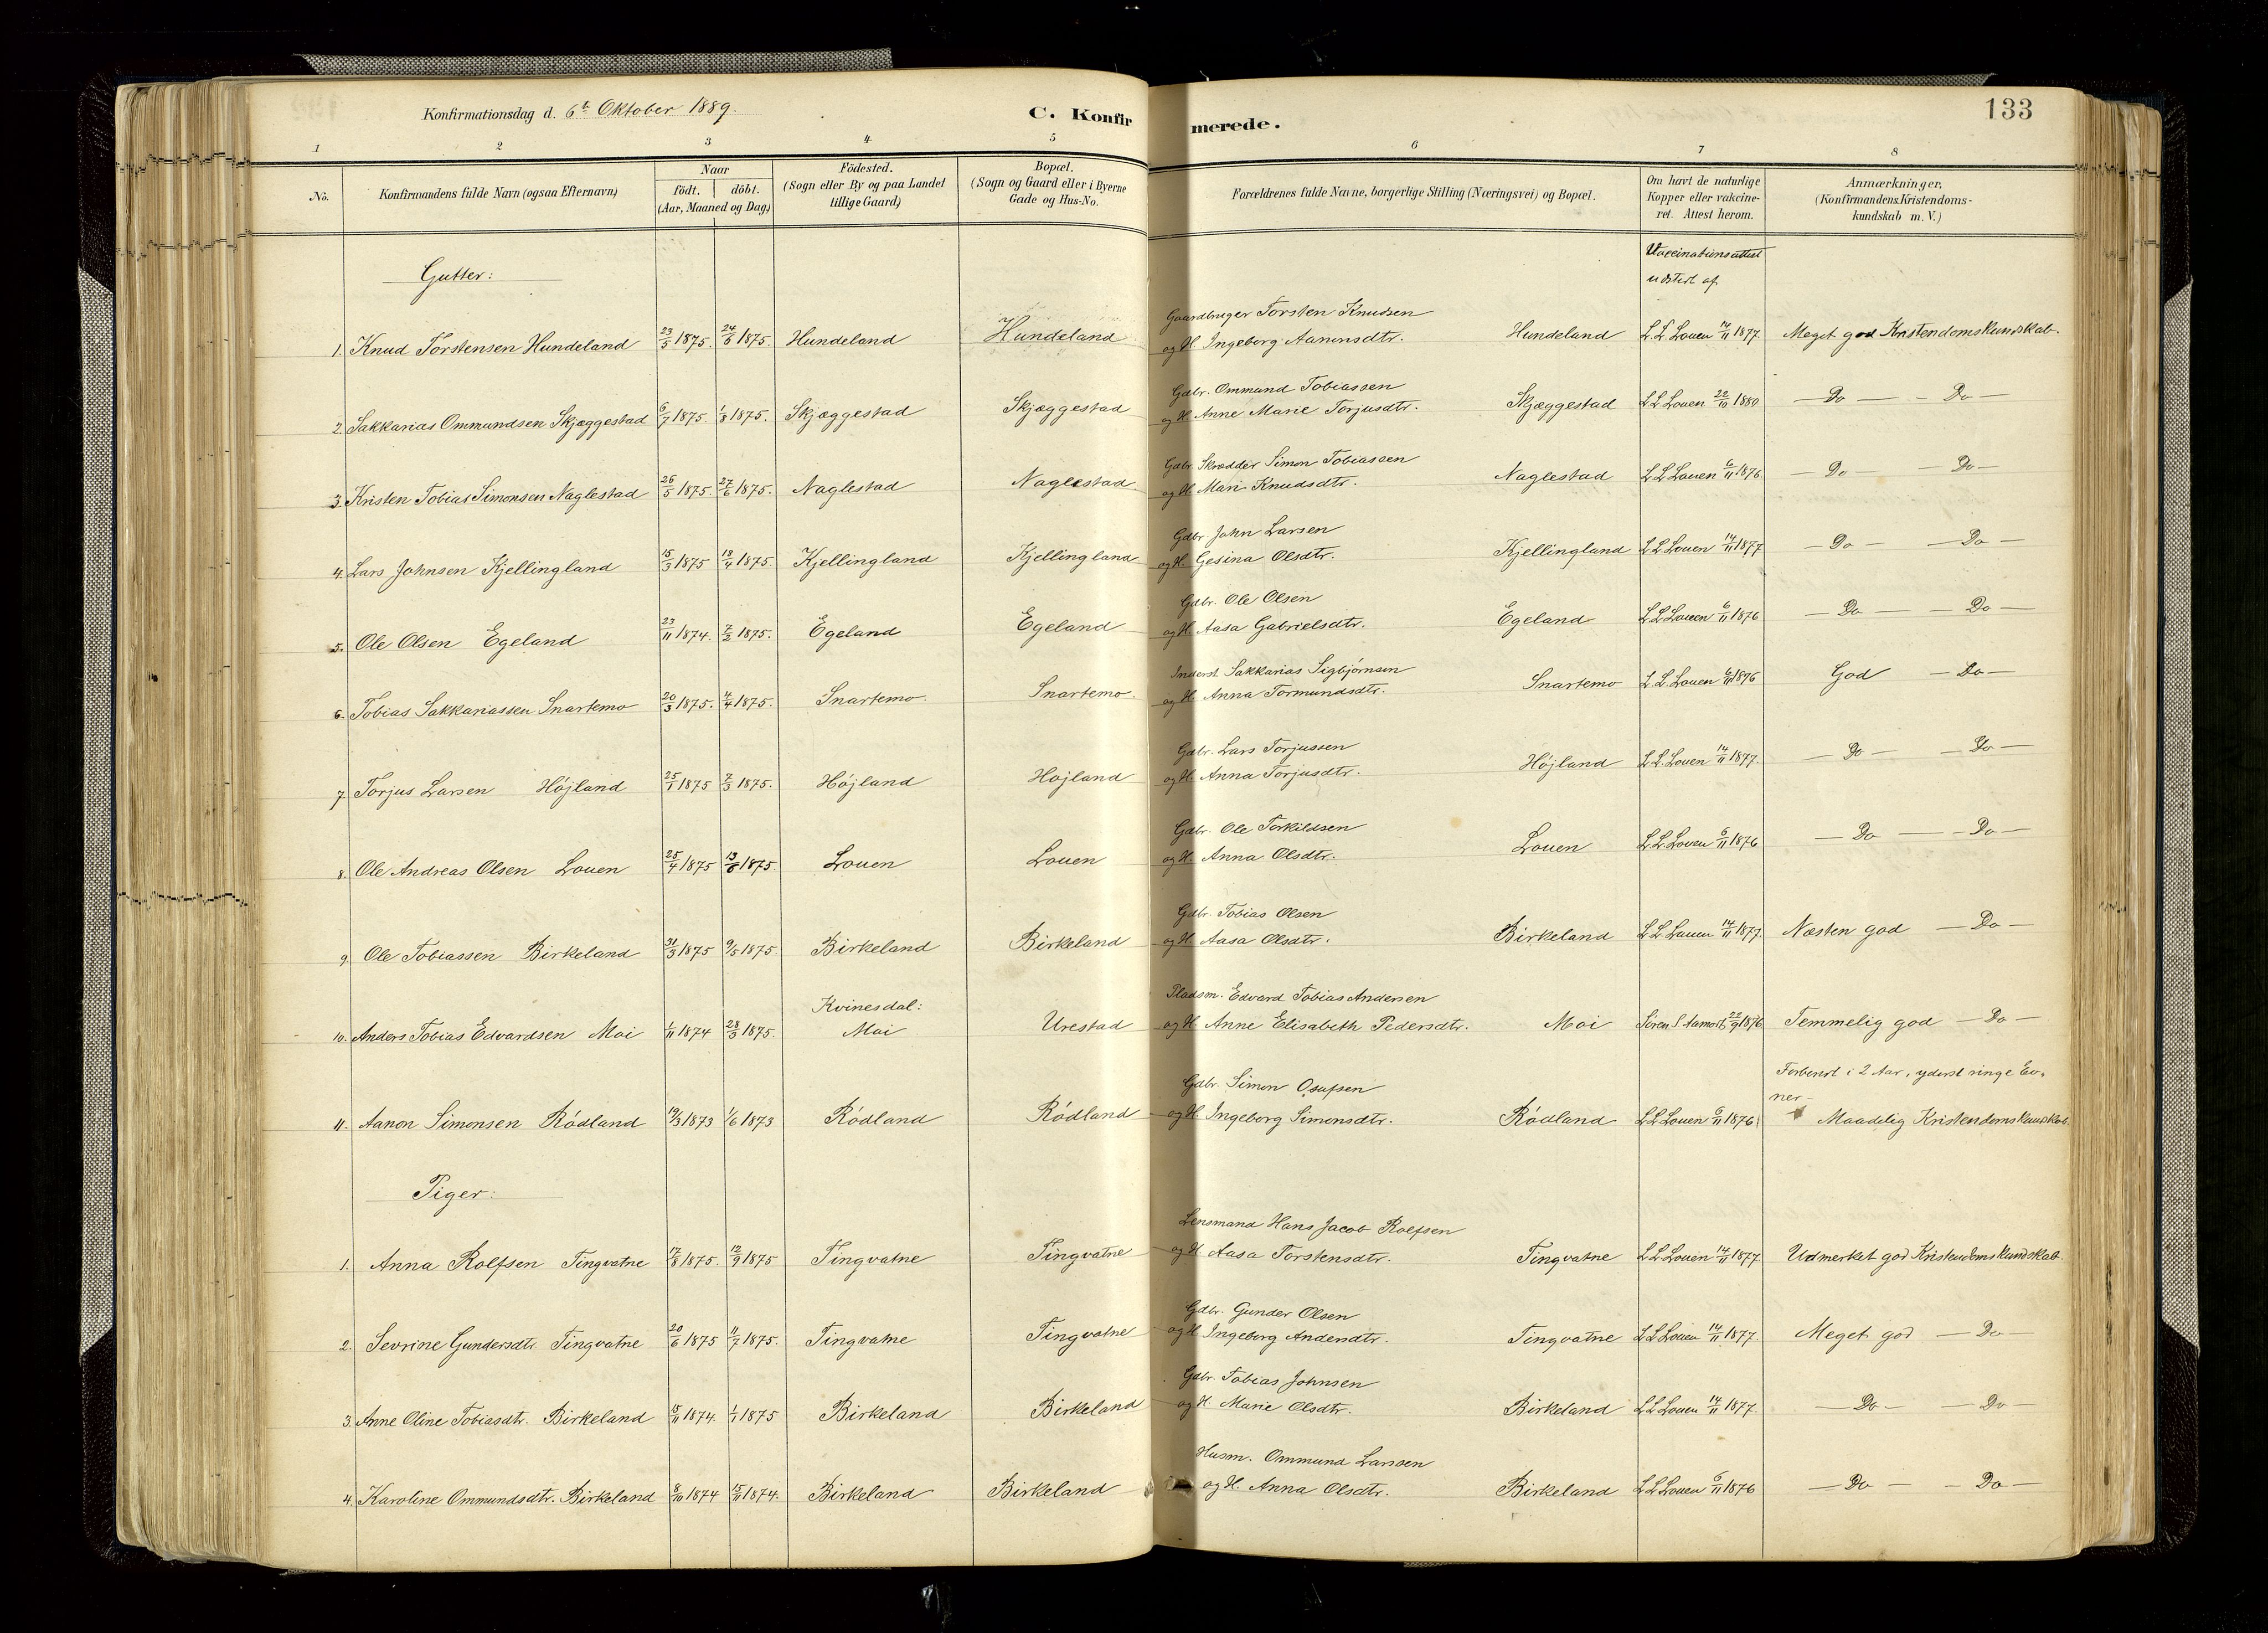 Konfirmationsdag d. 6te Oktober 1889.
C. Konfirmerede.
133
1 2 3 4 5 6 7 8
No.
Konfirmandens fulde Navn (ogsaa Efternavn)
Naar
födt. döbt.
(Aar, Maaned og Dag)
Födested.
(Sogn eller By og paa Landet
tillige Gaard)
Bopæl.
(Sogn og Gaard eller i Byerne
Gade og Hus-No.
Forældrenes fulde Navne, borgerlige Stilling (Næringsvei) og Bopæl.
Om havt de naturlige
Kopper eller vakcine-
ret. Attest herom.
Anmærkninger,
(Konfirmandens Kristendoms-
kundskab m. V.)
Vaccinationsattest
udstedt af
Gutter:
Gaardbruger Torsten Knudsen
1. Knud Torstensen Hundeland 23/5 1875. 24/6 1875. Hundeland Hundeland og H. Ingeborg Aanensdtr. Hundeland L. L. Louen 14/11 1877. Meget god Kristendomskundskab.
Gdbr. Ommund Tobiassen
2. Sakkarias Ommundsen Skjæggestad 6/7 1875. 1/8 1875. Skjæggestad Skjæggestad og H. Anne Marie Torjusdtr. Skjæggestad L L Louen 22/10 1880 — Do — — Do —
Gdbr. Skrædder Simon Tobiassen
3. Kristen Tobias Simonsen Naglestad 26/5 1875. 27/6 1875. Naglestad Naglestad og H. Mari Knudsdtr. Naglestad L L Louen 6/11 1876. — Do — — Do —
Gdbr. John Larsen
4. Lars Johnsen Kjellingland 15/3 1875 18/4 1875. Kjellingland Kjellingland og H. Gesina Olsdtr. Kjellingland L L Louen 14/11 1877 — Do — — Do —
Gdbr. Ole Olsen
5. Ole Olsen Egeland 23/11 1874. 7/2 1875. Egeland Egeland og H. Aasa Gabrielsdtr. Egeland L L Louen 6/11 1876 — Do — — Do —
Inderst Sakkarias Sigbjørnsen
6. Tobias Sakkariassen Snartemo 20/3 1875. 4/4 1875. Snartemo. Snartemo. og H. Anna Tormundsdtr. Snartemo L. L. Louen 6/11 1876 God — Do —
Gdbr. Lars Torjussen
7. Torjus Larsen Höjland 25/1 1875 7/3 1875. Höjland Hojland og H. Anna Torjusdtr. Höjland L L. Louen 14/11 1877. — Do — — Do —
Gdbr. Ole Torkildsen
8. Ole Andreas Olsen Louen 25/4 1875 13/6 1875. Louen Louen og H. Anna Olsdtr. Louen L L Louen 6/11 1876 — Do — — Do —
Gdbr. Tobias Olsen
9 Ole Tobiassen Birkeland 31/3 1875 9/5 1875. Birkeland Birkeland og H. Aasa Olsdtr. Birkeland L L Louen 14/11 1877. Næsten god — Do —
Kvinesdal: Pladsm. Edvard Tobias Andersen
10. Anders Tobias Edvardsen Moi 1/11 1874 28/3 1875. Moi Urestad og H. Anne Elisabeth Pedersdtr. Moi Sören S Aamodt 22/9 1876 Temmelig god — Do —
Gdbr. Simon Osufsen Forberedt i 2 Aar, yderst ringe Ev-
ner.
11. Aanon Simonsen Rödland 19/3 1873 1/6 1873 Rödland Rödland og H. Ingeborg Simonsdtr. Rödland L L Louen 6/11 1876. Maadelig Kristendomskundskab.
Piger:
Lensmand Hans Jacob Rolfsen
1. Anna Rolfsen Tingvatne 17/8 1875. 12/9 1875 Tingvatne Tingvatne og H. Aasa Torstensdtr. Tingvatne L L Louen 14/11 1877 Udmerket god Kristendomskundskab.
Gdbr. Gunder Olsen
2. Sevrine Gundersdtr Tingvatne 20/6 1875 11/7 1875. Tingvatne Tingvatne og H. Ingeborg Andersdtr. Tingvatne L L Louen 14/11 1877. Meget god — Do —
Gdbr. Tobias Johnsen
3. Anne Oline Tobiasdtr. Birkeland 15/11 1874. 1/1 1875 Birkeland Birkeland og H. Marie Olsdtr. Birkeland L L Louen 14/11 1877. — Do — — Do —
Husm. Ommund Larssen
4. Karoline Ommundsdtr. Birkeland 8/10 1874 15/11 1874. Birkeland Birkeland og H. Anna Olsdtr. Birkeland L L Louen 6/11 1876 — Do — — Do —